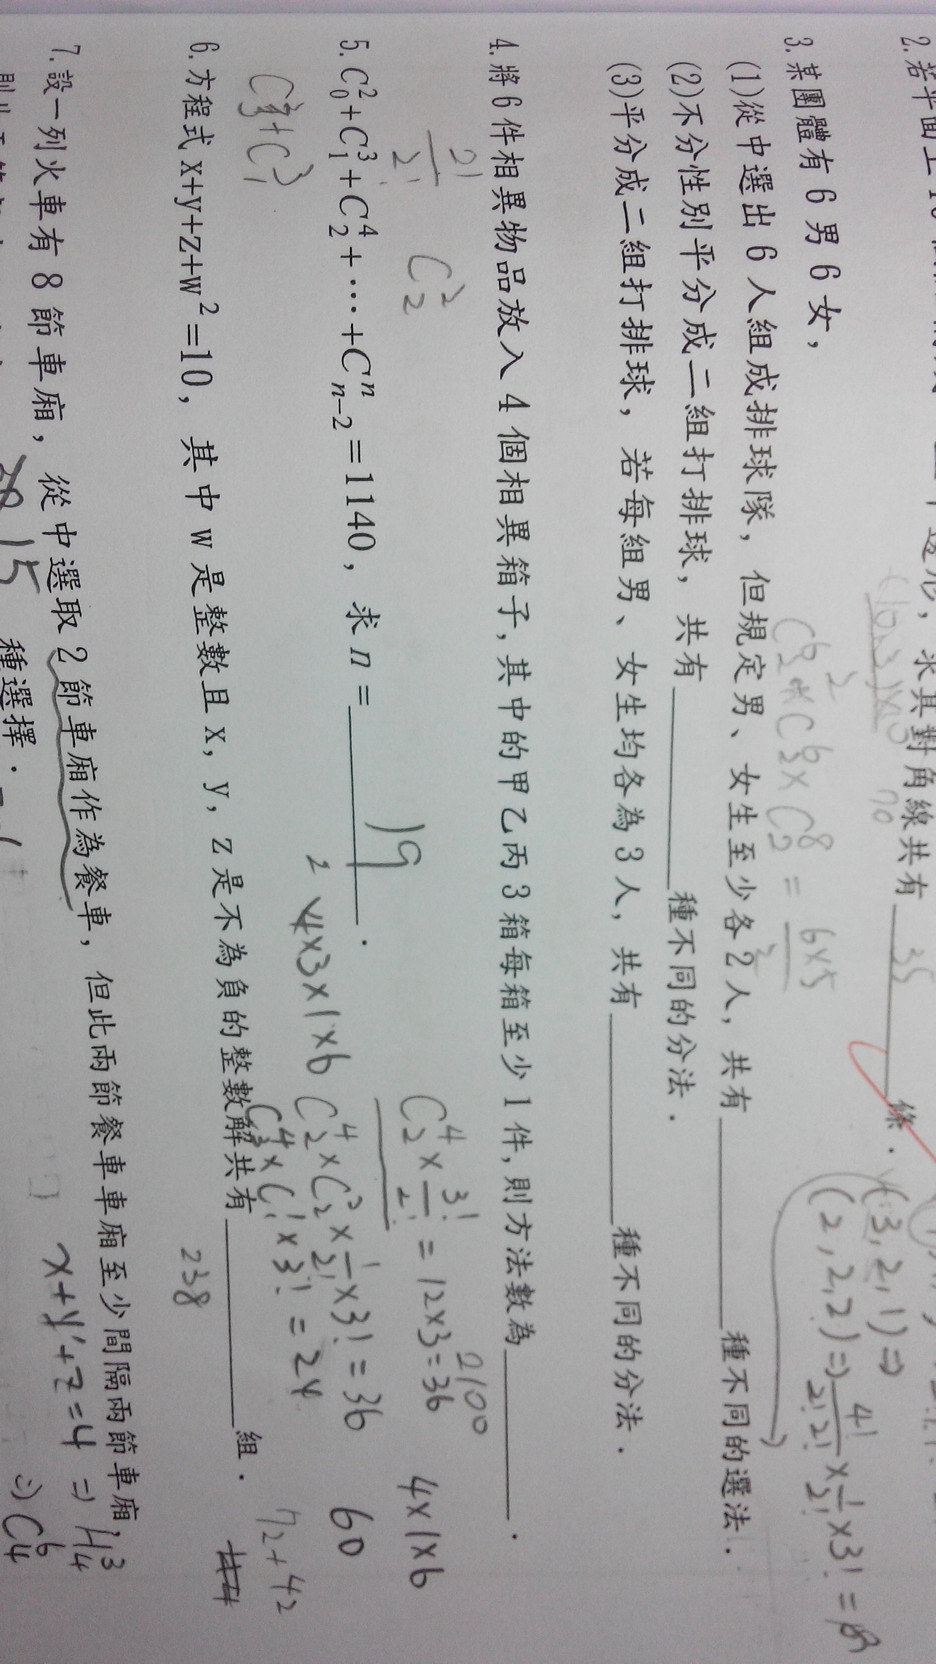 2.若平面上10
邊形,求其對角線共有 35 條.
3.某團體有6男6女,
(1)從中選出6人組成排球隊,但規定男、女生至少各2人,共有______種不同的選法.
(2)不分性別平分成二組打排球,共有______種不同的分法.
(3)平分成二組打排球,若每組男、女生均各為3人,共有______種不同的分法.
4.將6件相異物品放入4個相異箱子,其中的甲乙丙3箱每箱至少1件,則方法數為______.
2100
5.C²₀+C³₁+C⁴₂+⋯+Cⁿₙ₋₂=1140,求n=______.
19
6.方程式x+y+z+w²=10,其中w是整數且x,y,z是不為負的整數解共有______組.
238
7.設一列火車有8節車廂,從中選取2節車廂作為餐車,但此兩節餐車車廂至少間隔兩節車廂,
15 種選擇.
70
= 6x5
(3,2,1)⇒
(2,2,2)⇒ 4!/2!2! x 1/2! x3! =
C⁴₂ x 3!/2! = 12x3=36
4x1x6
C⁴₂xC²₂x 1/2! x3! = 36
60
x3! = 24
72+42
4x3x1x6
2!/2!
C²₂
x+y'+z=4 ⇒ H³₄
⇒ C⁶₄